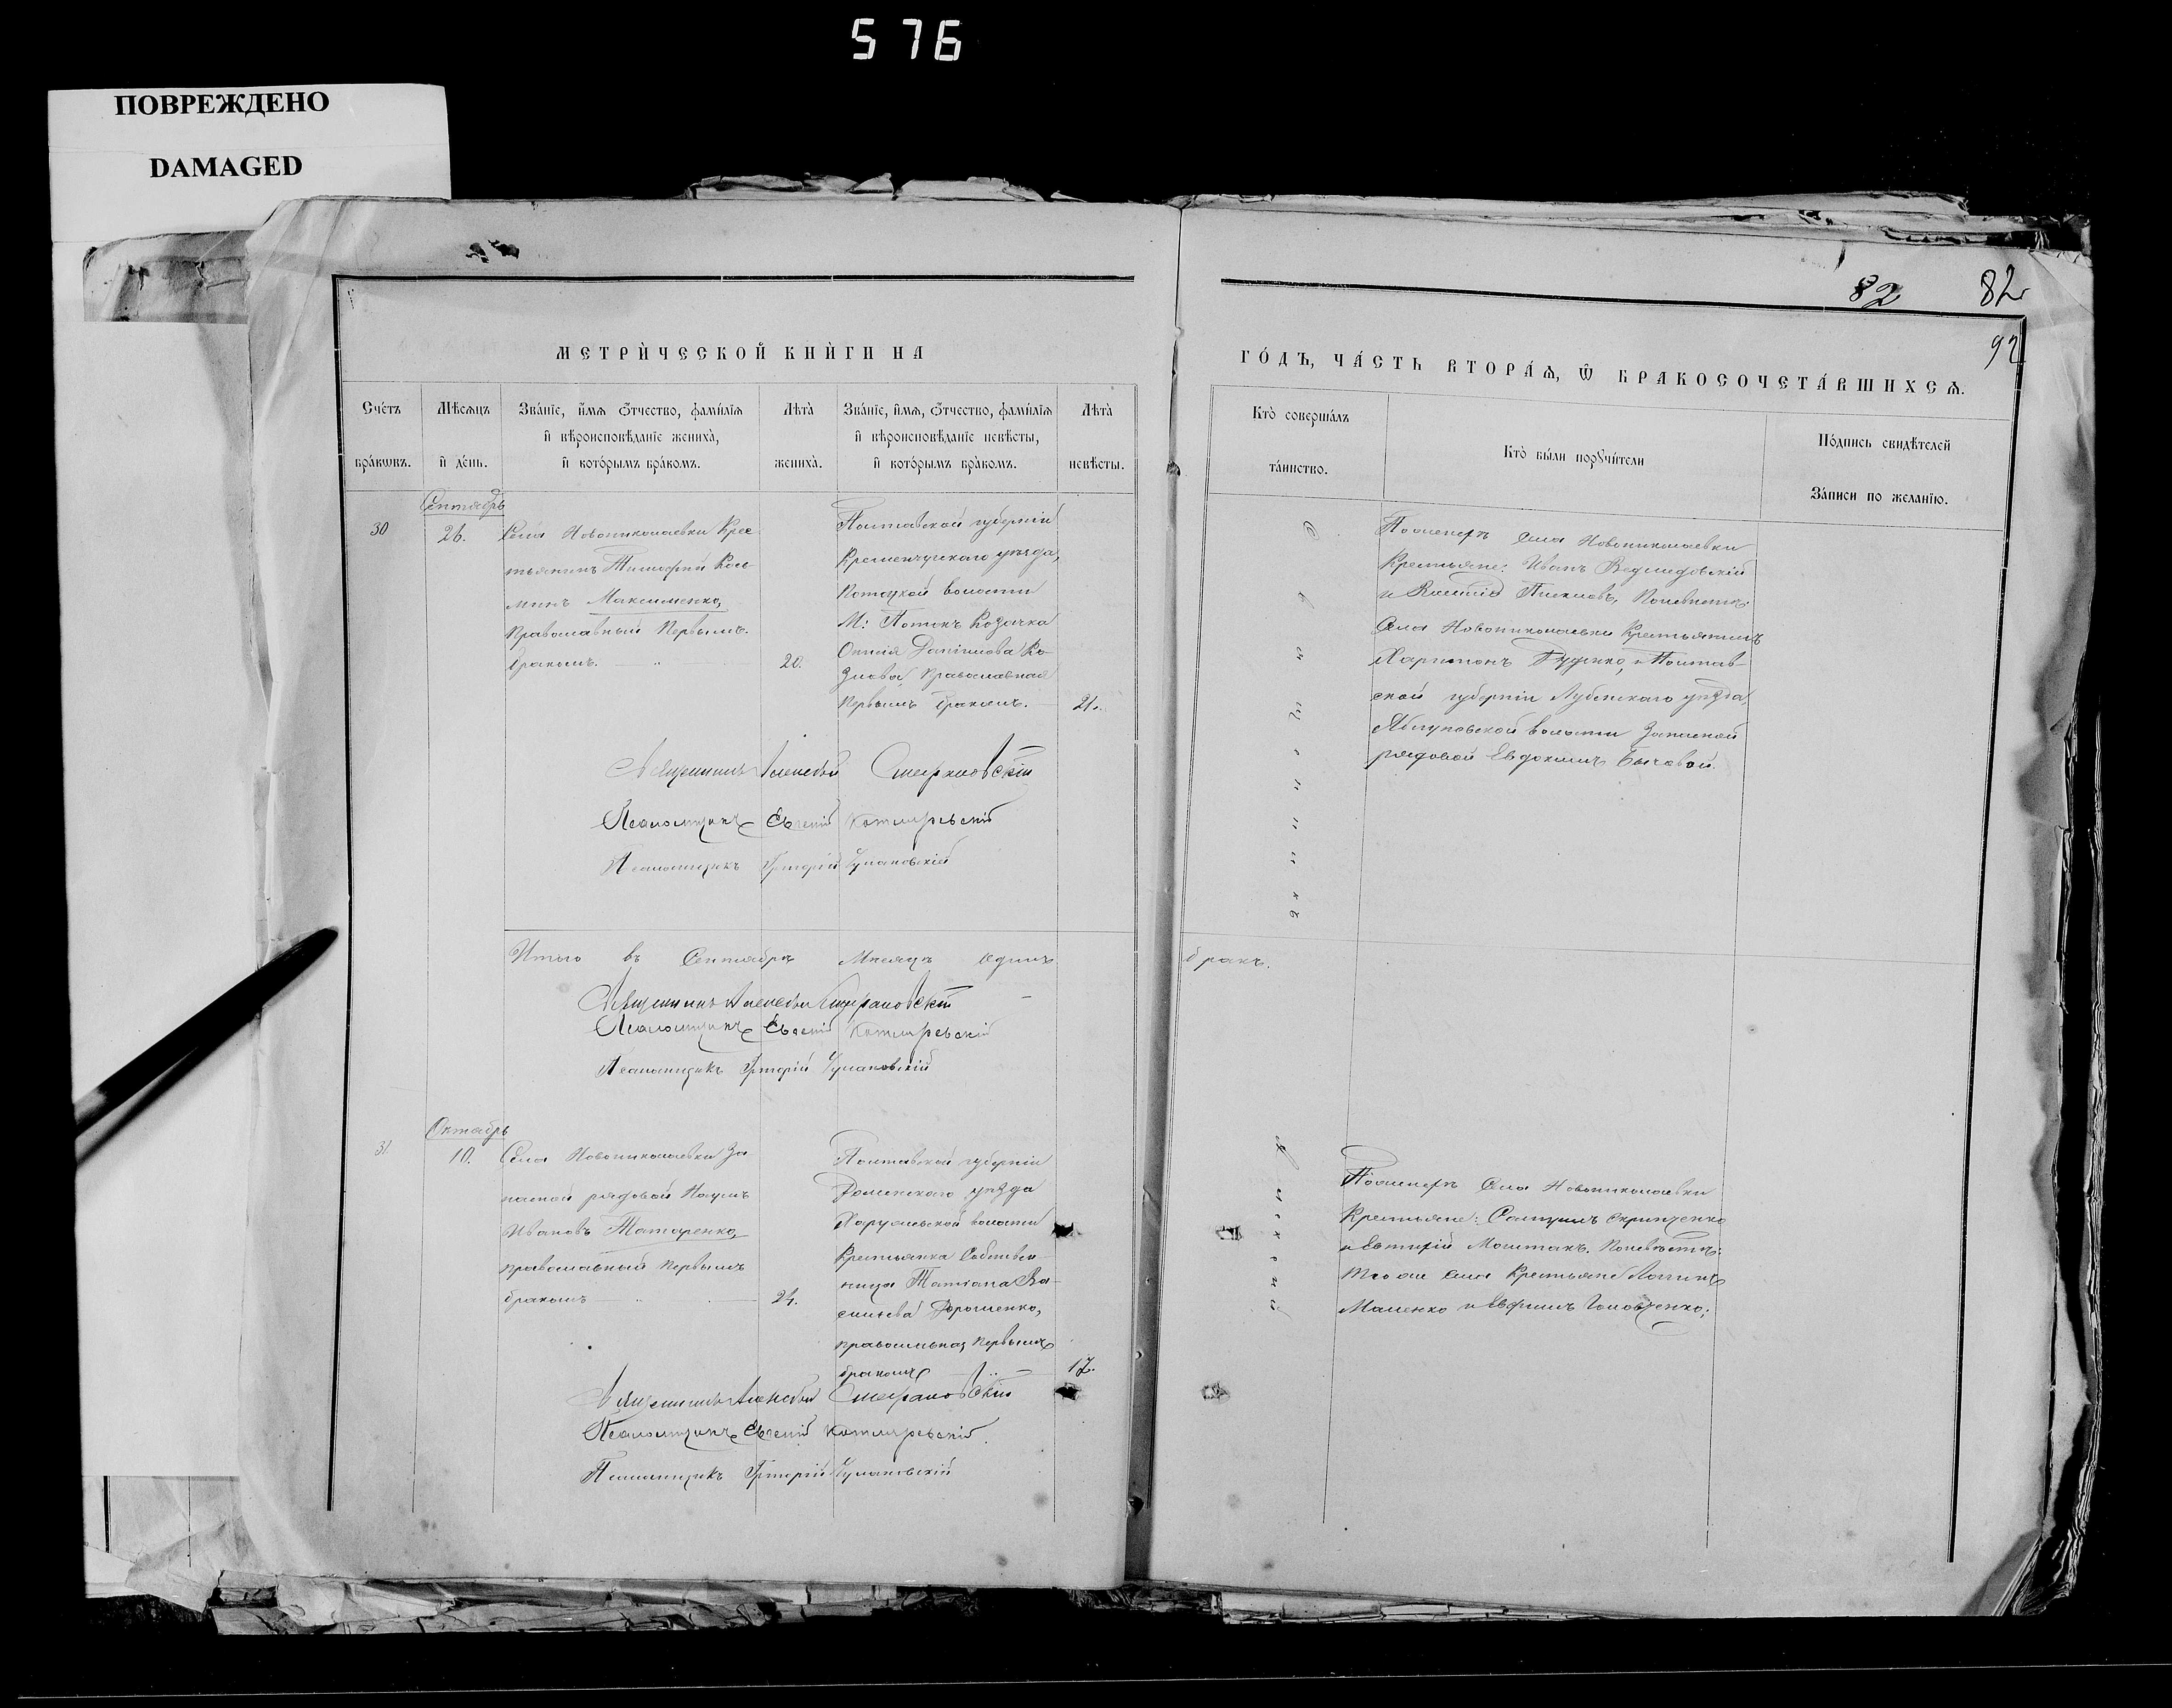 576
ПОВРЕЖДЕНО
DAMAGED
82 82
92
МЕТРИ́ЧЕСКОЙ КНИ́ГИ НА
ГО́ДЪ, ЧА́СТЬ ВТОРА́Ѧ, Ѽ БРАКОСОЧЕТА́ВШИХСѦ.
Сче́тъ
бра́кѡвъ.
Мѣсяцъ
и҆ де́нь.
Зва́нїе, и҆́мѧ ѻ҆́тчество, фами́лїѧ
и҆ вѣроисповѣданїе жениха̀,
и҆ кото́рымъ бра́комъ.
Лѣта̀
жениха̀.
Зва́нїе, и҆́мѧ, ѻ҆́тчество, фами́лїѧ
и҆ вѣроисповѣданїе невѣсты,
и҆ кото́рымъ бра́комъ.
Лѣта̀
невѣсты.
Кто̀ соверша́лъ
та́инство.
Кто̀ бы́ли порꙋчи́тели
По́дпись свидѣтелей
За́писи по жела́нїю.
Сентябрь
30
26.
Села Новониколаевки Крес
тьянинъ Тимофей Косъ
минъ Максименко,
православный первымъ
бракомъ.
20.
Полтавской губерніи
Кременчугскаго уѣзда,
Потоцкой волости
М: Потокъ Козачка
Данілова Ко-
злова, православная
первымъ бракомъ.
21.
По женихѣ Села Новониколаевки
Крестьяне: Иванъ Ведмедовскій
и По невѣстѣ:
Села Новониколаевки Крестьянинъ
Харитонъ Руденко, и Полтав-
ской губерніи Лубенскаго уѣзда,
Яблуновской волости Запасной
рядовой Евдокимъ Бычовой.
Священникъ Алексѣй
Псаломщикъ Евгеній Котляревскій
Псаломщикъ Григорій
Итого въ Сентябрѣ Мѣсяцѣ одинъ
бракъ.
Священникъ Алексѣй
Псаломщикъ Евгеній Котляревскій
Псаломщикъ Григорій
Октябрь
31
10.
Села Новониколаевки За
пасной рядовой Наумъ
Ивановъ Татаренко,
православный первымъ
бракомъ
24.
Полтавской губерніи
Роменскаго уѣзда
волости
Крестьянка Собствен
ница Татіана Ва-
сильева Дорошенко,
православная первымъ
бракомъ
17.
По женихѣ Села Новониколаевки
Крестьяне: Самуилъ Скрипченко
и Евтихій Моштакъ. По невѣстѣ:
того же села Крестьяне Логгинъ
и Ефимъ Головченко;
Священникъ Алексѣй
Псаломщикъ Евгеній Котляревскій
Псаломщикъ Григорій